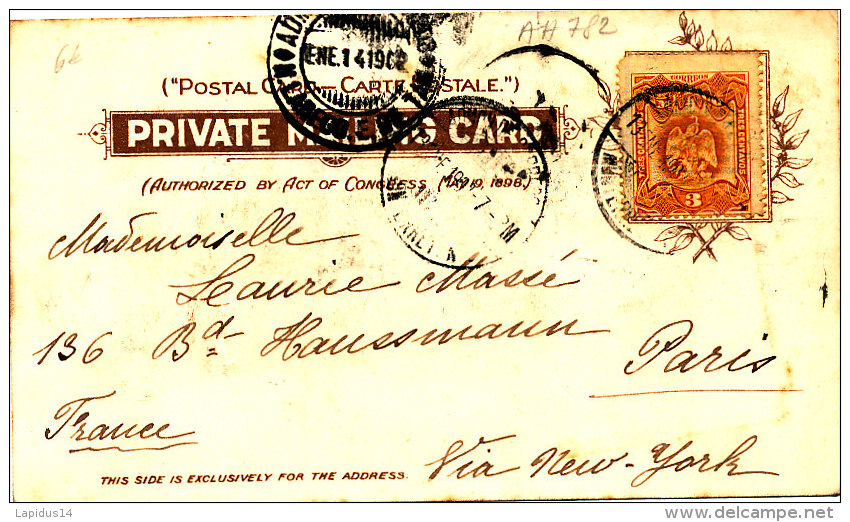 6k
AH 782
ENE.14 1902
("POSTAL CARD — CARTE POSTALE.")
PRIVATE MAILING CARD
(AUTHORIZED BY ACT OF CONGRESS (MAY 19, 1898.)
CORREOS
3
7-PM
Mademoiselle
Laurie Massé
136 Bd Haussmann
Paris
France
Via New-York
THIS SIDE IS EXCLUSIVELY FOR THE ADDRESS.
Lapidus14
delcampe.net